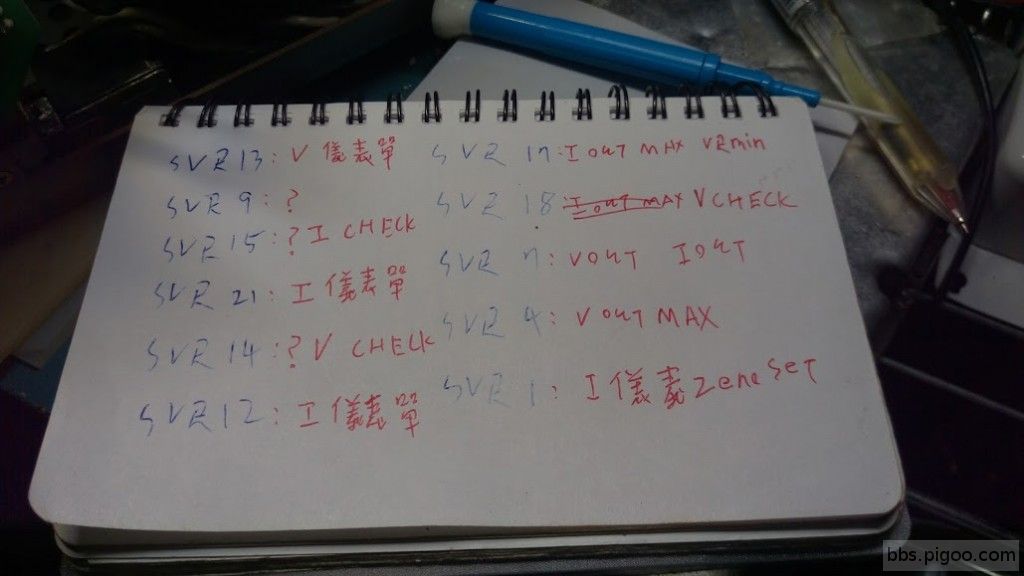 SVR 13: V 儀表單
SVR 9: ?
SVR 15: ? I CHECK
SVR 21: I 儀表單
SVR 14: ? V CHECK
SVR 12: I 儀表單
SVR 17: I OUT MAX VRmin
SVR 18: I OUT MAX V CHECK
SVR 7: VOUT IOUT
SVR 4: V OUT MAX
SVR 1: I 儀表 Zero SET
bbs.pigoo.com